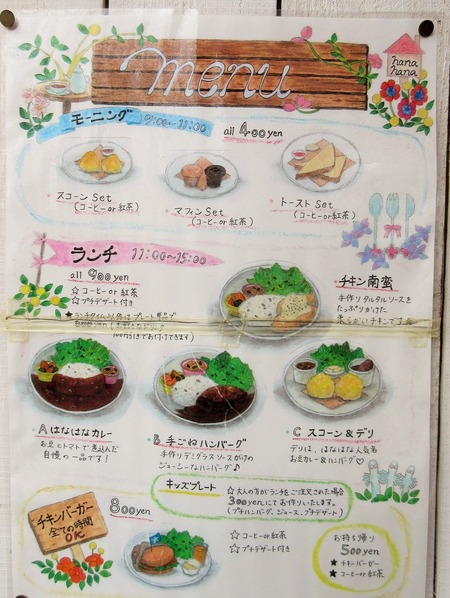 menu
hana
hana
モーニング 9:00〜11:00
all 400 yen
スコーン Set
(コーヒー or 紅茶)
マフィン Set
(コーヒー or 紅茶)
トースト Set
(コーヒー or 紅茶)
ランチ 11:00〜15:00
all 900 yen
☆ コーヒー or 紅茶
☆ プチデザート付き
★ ランチタイム以外はプレート単品で
100円引きでお付けできます)
チキン南蛮
手作りタルタルソースを
たっぷりかけた
柔らかいチキンです
A はなはなカレー
お豆とトマトで煮込んだ
自慢の一品です!
B 手ごねハンバーグ
手作りデミグラスソースがけの
ジューシーなハンバーグ♪
C スコーン&デリ
デリは、はなはな人気者
お豆カレー&ハンバーグ♡
キッズプレート
☆ 大人の方がランチをご注文された場合
300yenにてお作りいたします。
(プチハンバーグ、ジュース、プチデザート)
チキンバーガー
全ての時間
OK
800yen
☆ コーヒー or 紅茶
☆ プチデザート付き
お持ち帰り
500yen
★ チキンバーガー
★ コーヒー or 紅茶